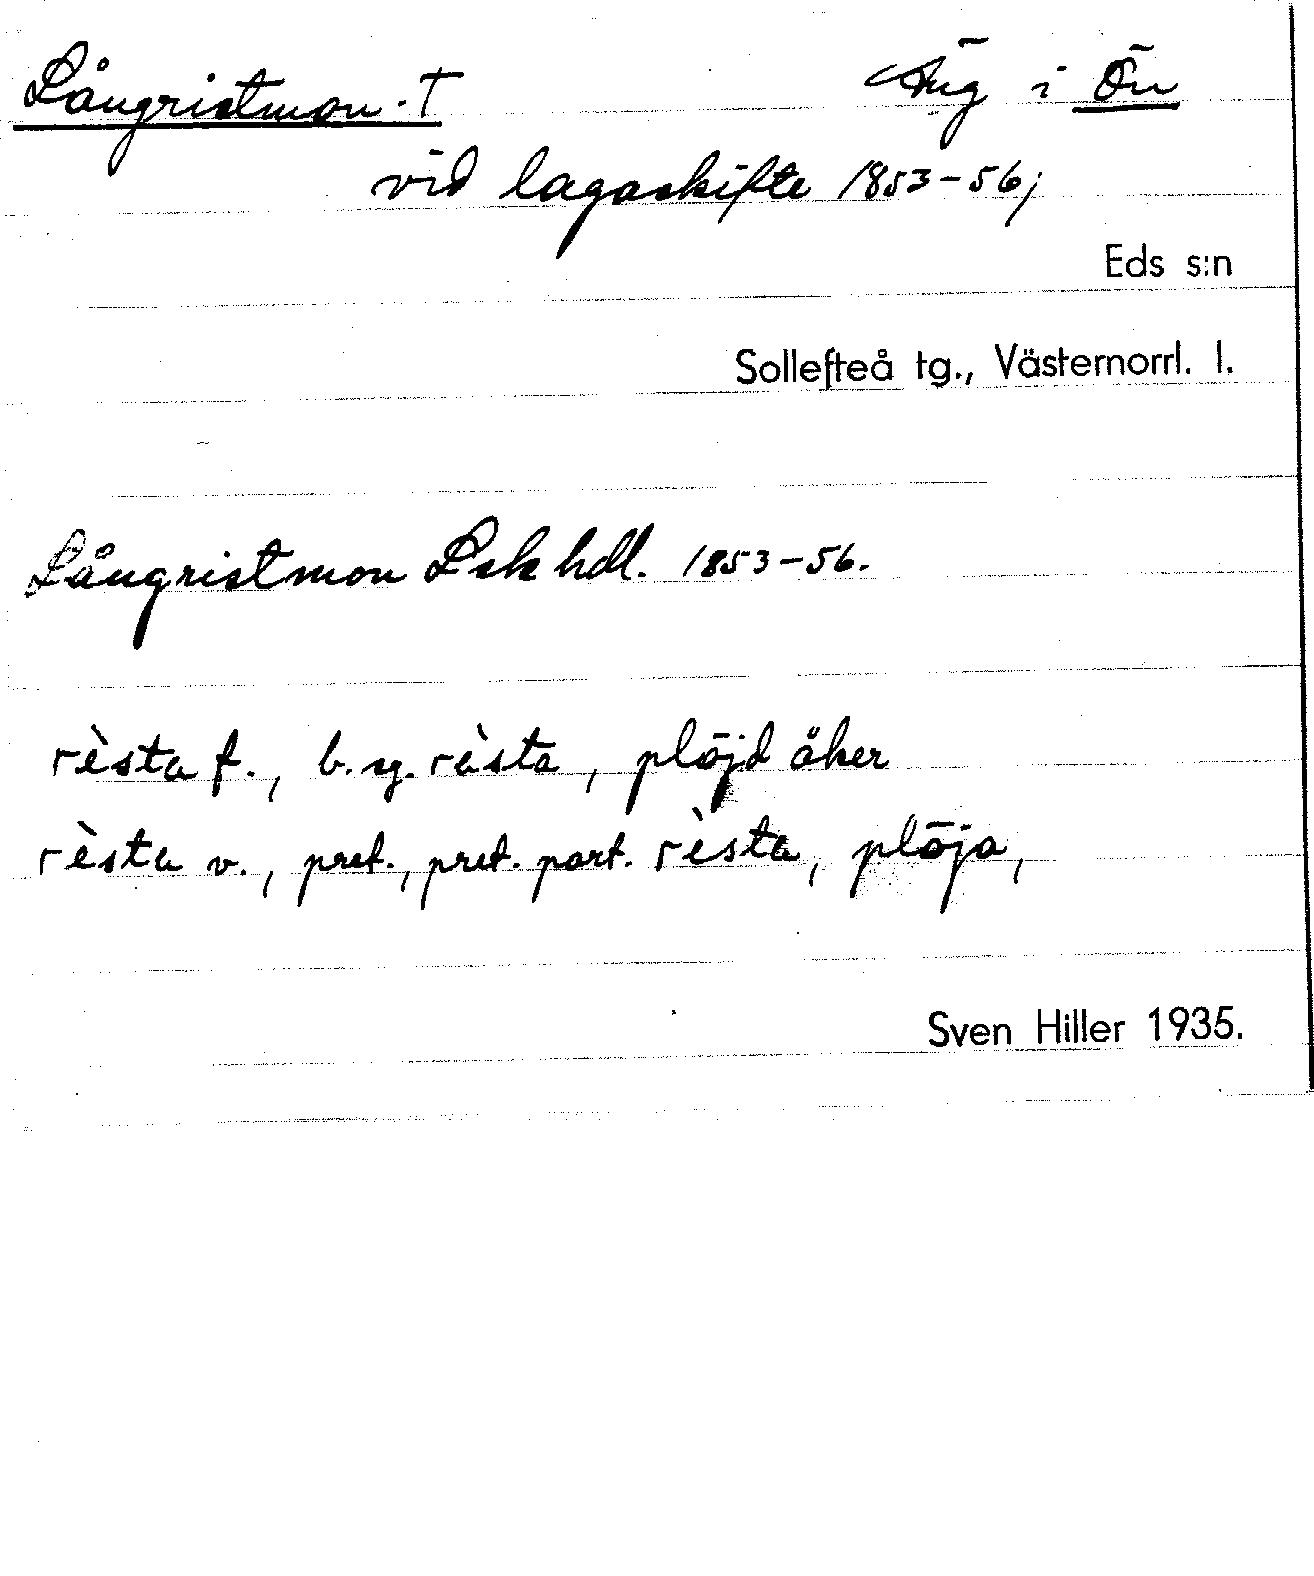 Långristmon. † Äng i Ön
vid lagaskifte 1853-56;
Eds s:n
Sollefteå tg., Västernorrl. l.
Långristmon Lsk hdl. 1853-56.
rèsta f., b. sg. rèsta, plöjd åker
rèsta v., pret., pret. part. rèsta, plöja,
Sven Hiller 1935.